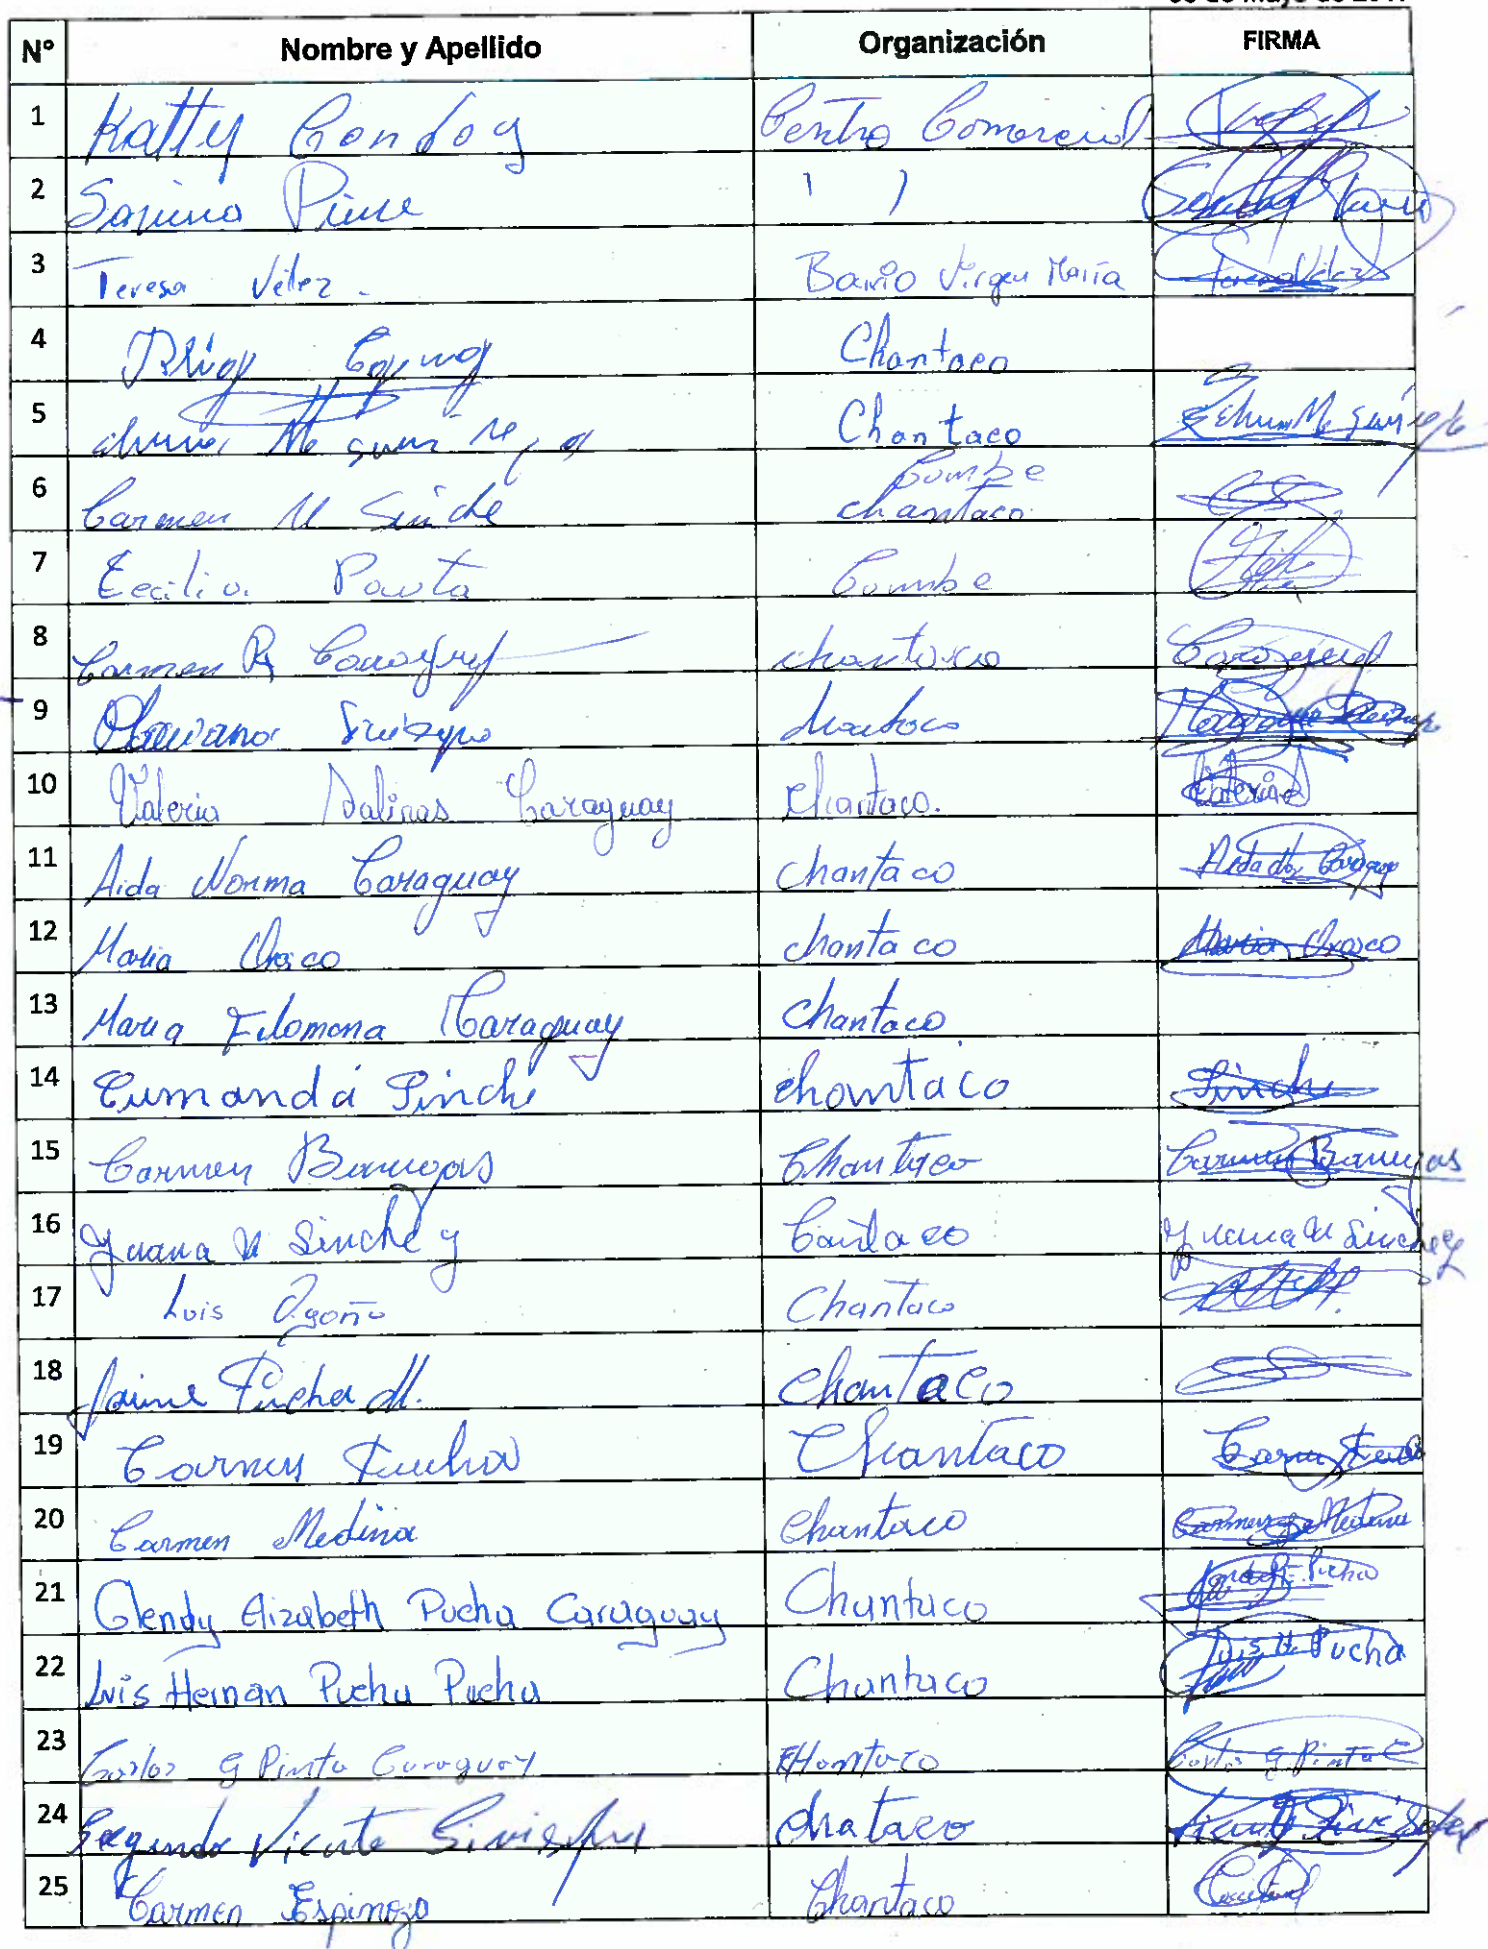 Nº Nombre y Apellido Organización FIRMA
1 Katty Condoy Centro Comercial
2 Pine
3 Teresa Vélez Barrio Virgen María Teresa Vélez
4 Chantaco
5 Chantaco
Cumbe
6 Carmen M Sinche chantaco
7 Cecilia Pauta Cumbe
8 Carmen R chantaco
9
10 Valeria Salinas Caraguay Chantaco. Valeria
11 Aida Norma Caraguay Chantaco Aida
12 Maria Orosco chantaco Maria Orosco
13 Maria Filomena Caraguay Chantaco
14 Cumandá Sinche chantaco Sinche
15 Carmen Chantaco Carmen
16 Juana M Sinche y Juana M Sinche y
17 Luis Ogoño Chantaco
18 Jaime Pucha M. Chantaco
19 Carmen Pucha Chantaco
20 Carmen Medina Chantaco Carmen Medina
21 Glendy Elizabeth Pucha Caraguay Chantaco
22 Luis Hernan Pucha Pucha Chantaco Luis H. Pucha
23 Carlos G Pinta Caraguay CHantaco Carlos G Pinta C
24 Segundo Vicente chataco Vicente
25 Carmen Espinoza Chantaco